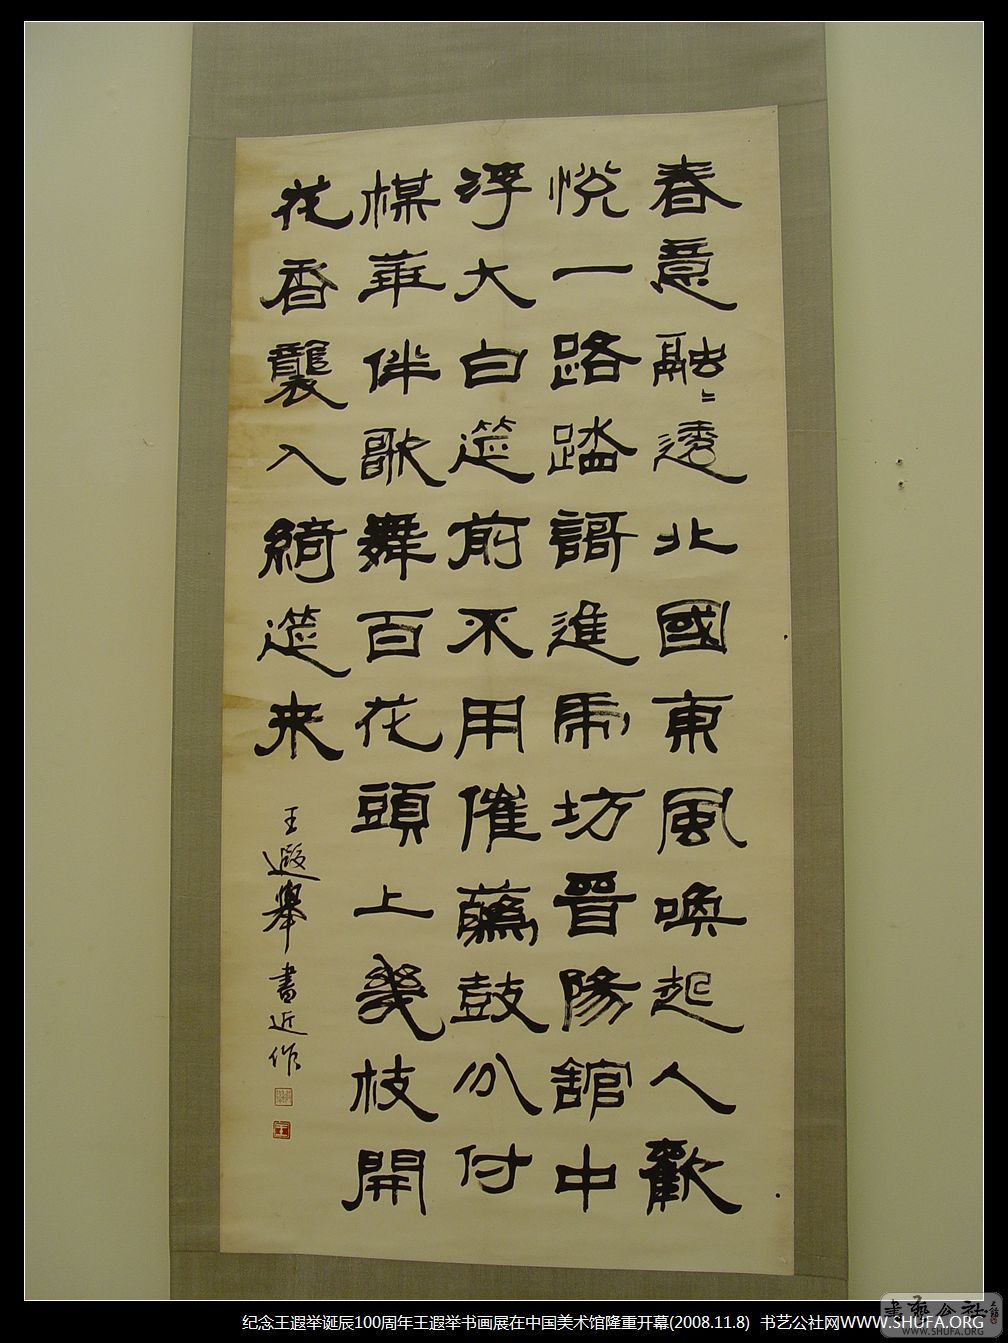 春意融〻透北國東風喚起人歡
悅一路踏謌進乕坊晉陽館中
浮大白筵前不用催蘤鼓分付
楳華伴歌舞百花頭上幾枝開
花香襲入綺筵来
王遐舉書近作
书艺公社
WWW.SHUFA.ORG
纪念王遐举诞辰100周年王遐举书画展在中国美术馆隆重开幕(2008.11.8) 书艺公社网WWW.SHUFA.ORG